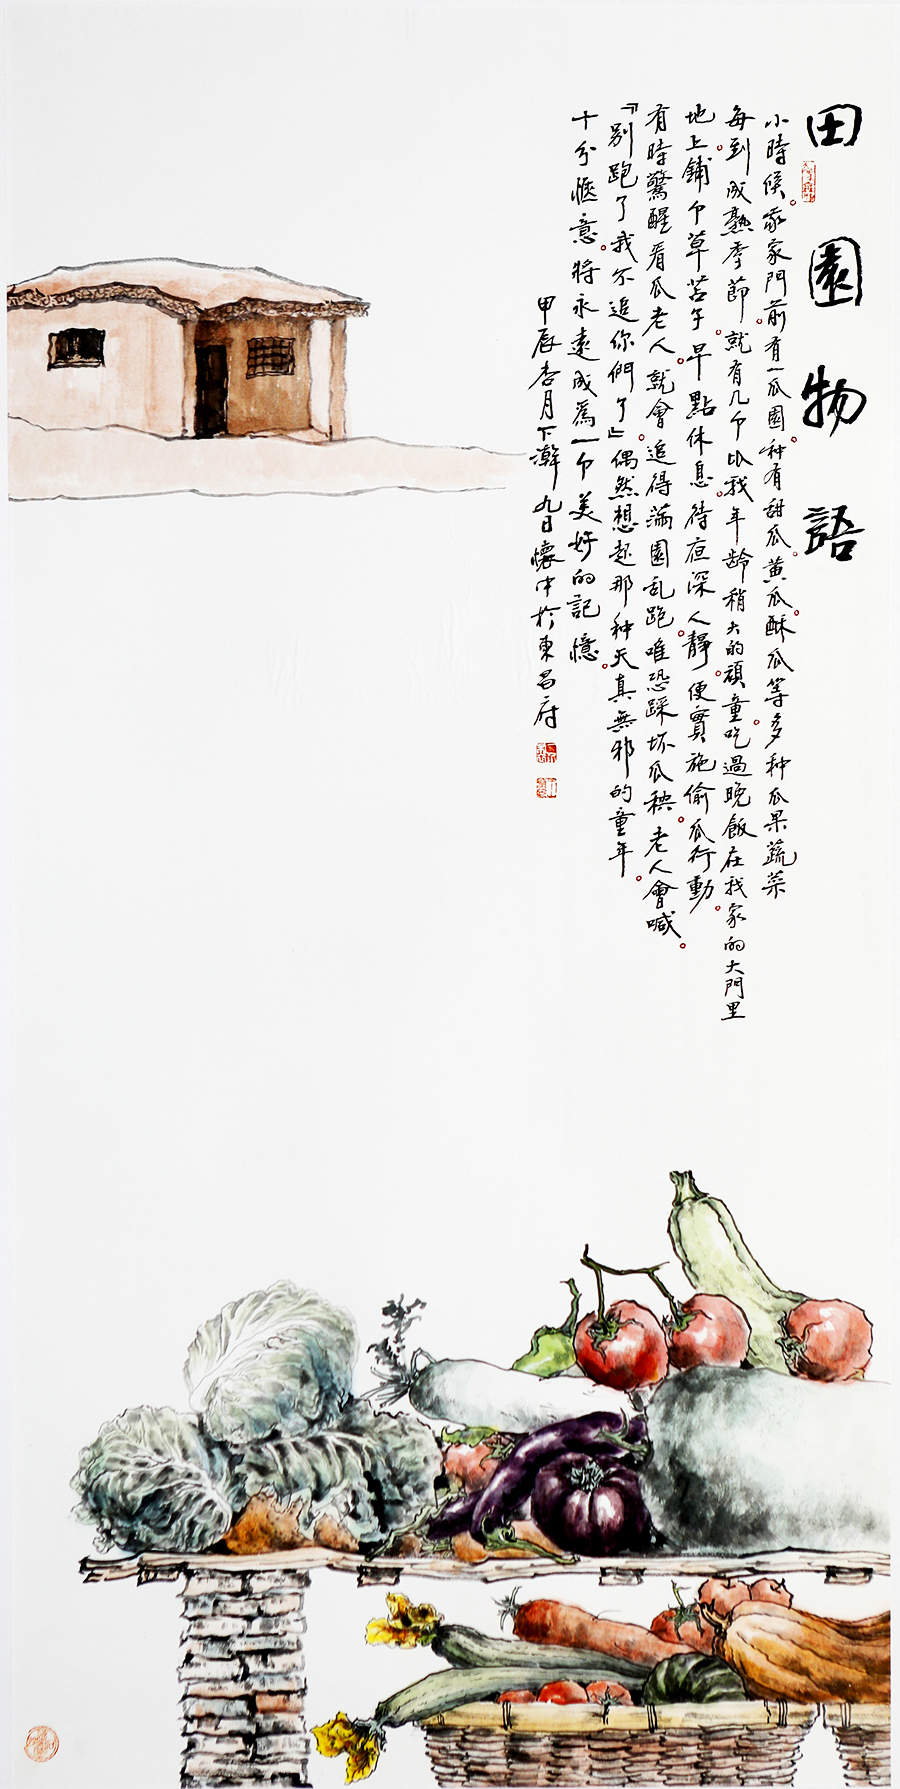 田園物語
小時候家家門前有一瓜園种有甜瓜黄瓜酥瓜等多种瓜果蔬菜
每到成熟季節就有几个比我年龄稍大的頑童吃過晚飯在我家的大門里
地上鋪个草苫子早點休息待夜深人靜便實施偷瓜行動
有時驚醒看瓜老人就會追得滿園乱跑唯恐踩坏瓜秧老人會喊
『别跑了我不追你們了』偶然想起那种天真無邪的童年
十分惬意將永遠成為一个美好的記憶
甲辰杏月下澣九日懷中於東昌府